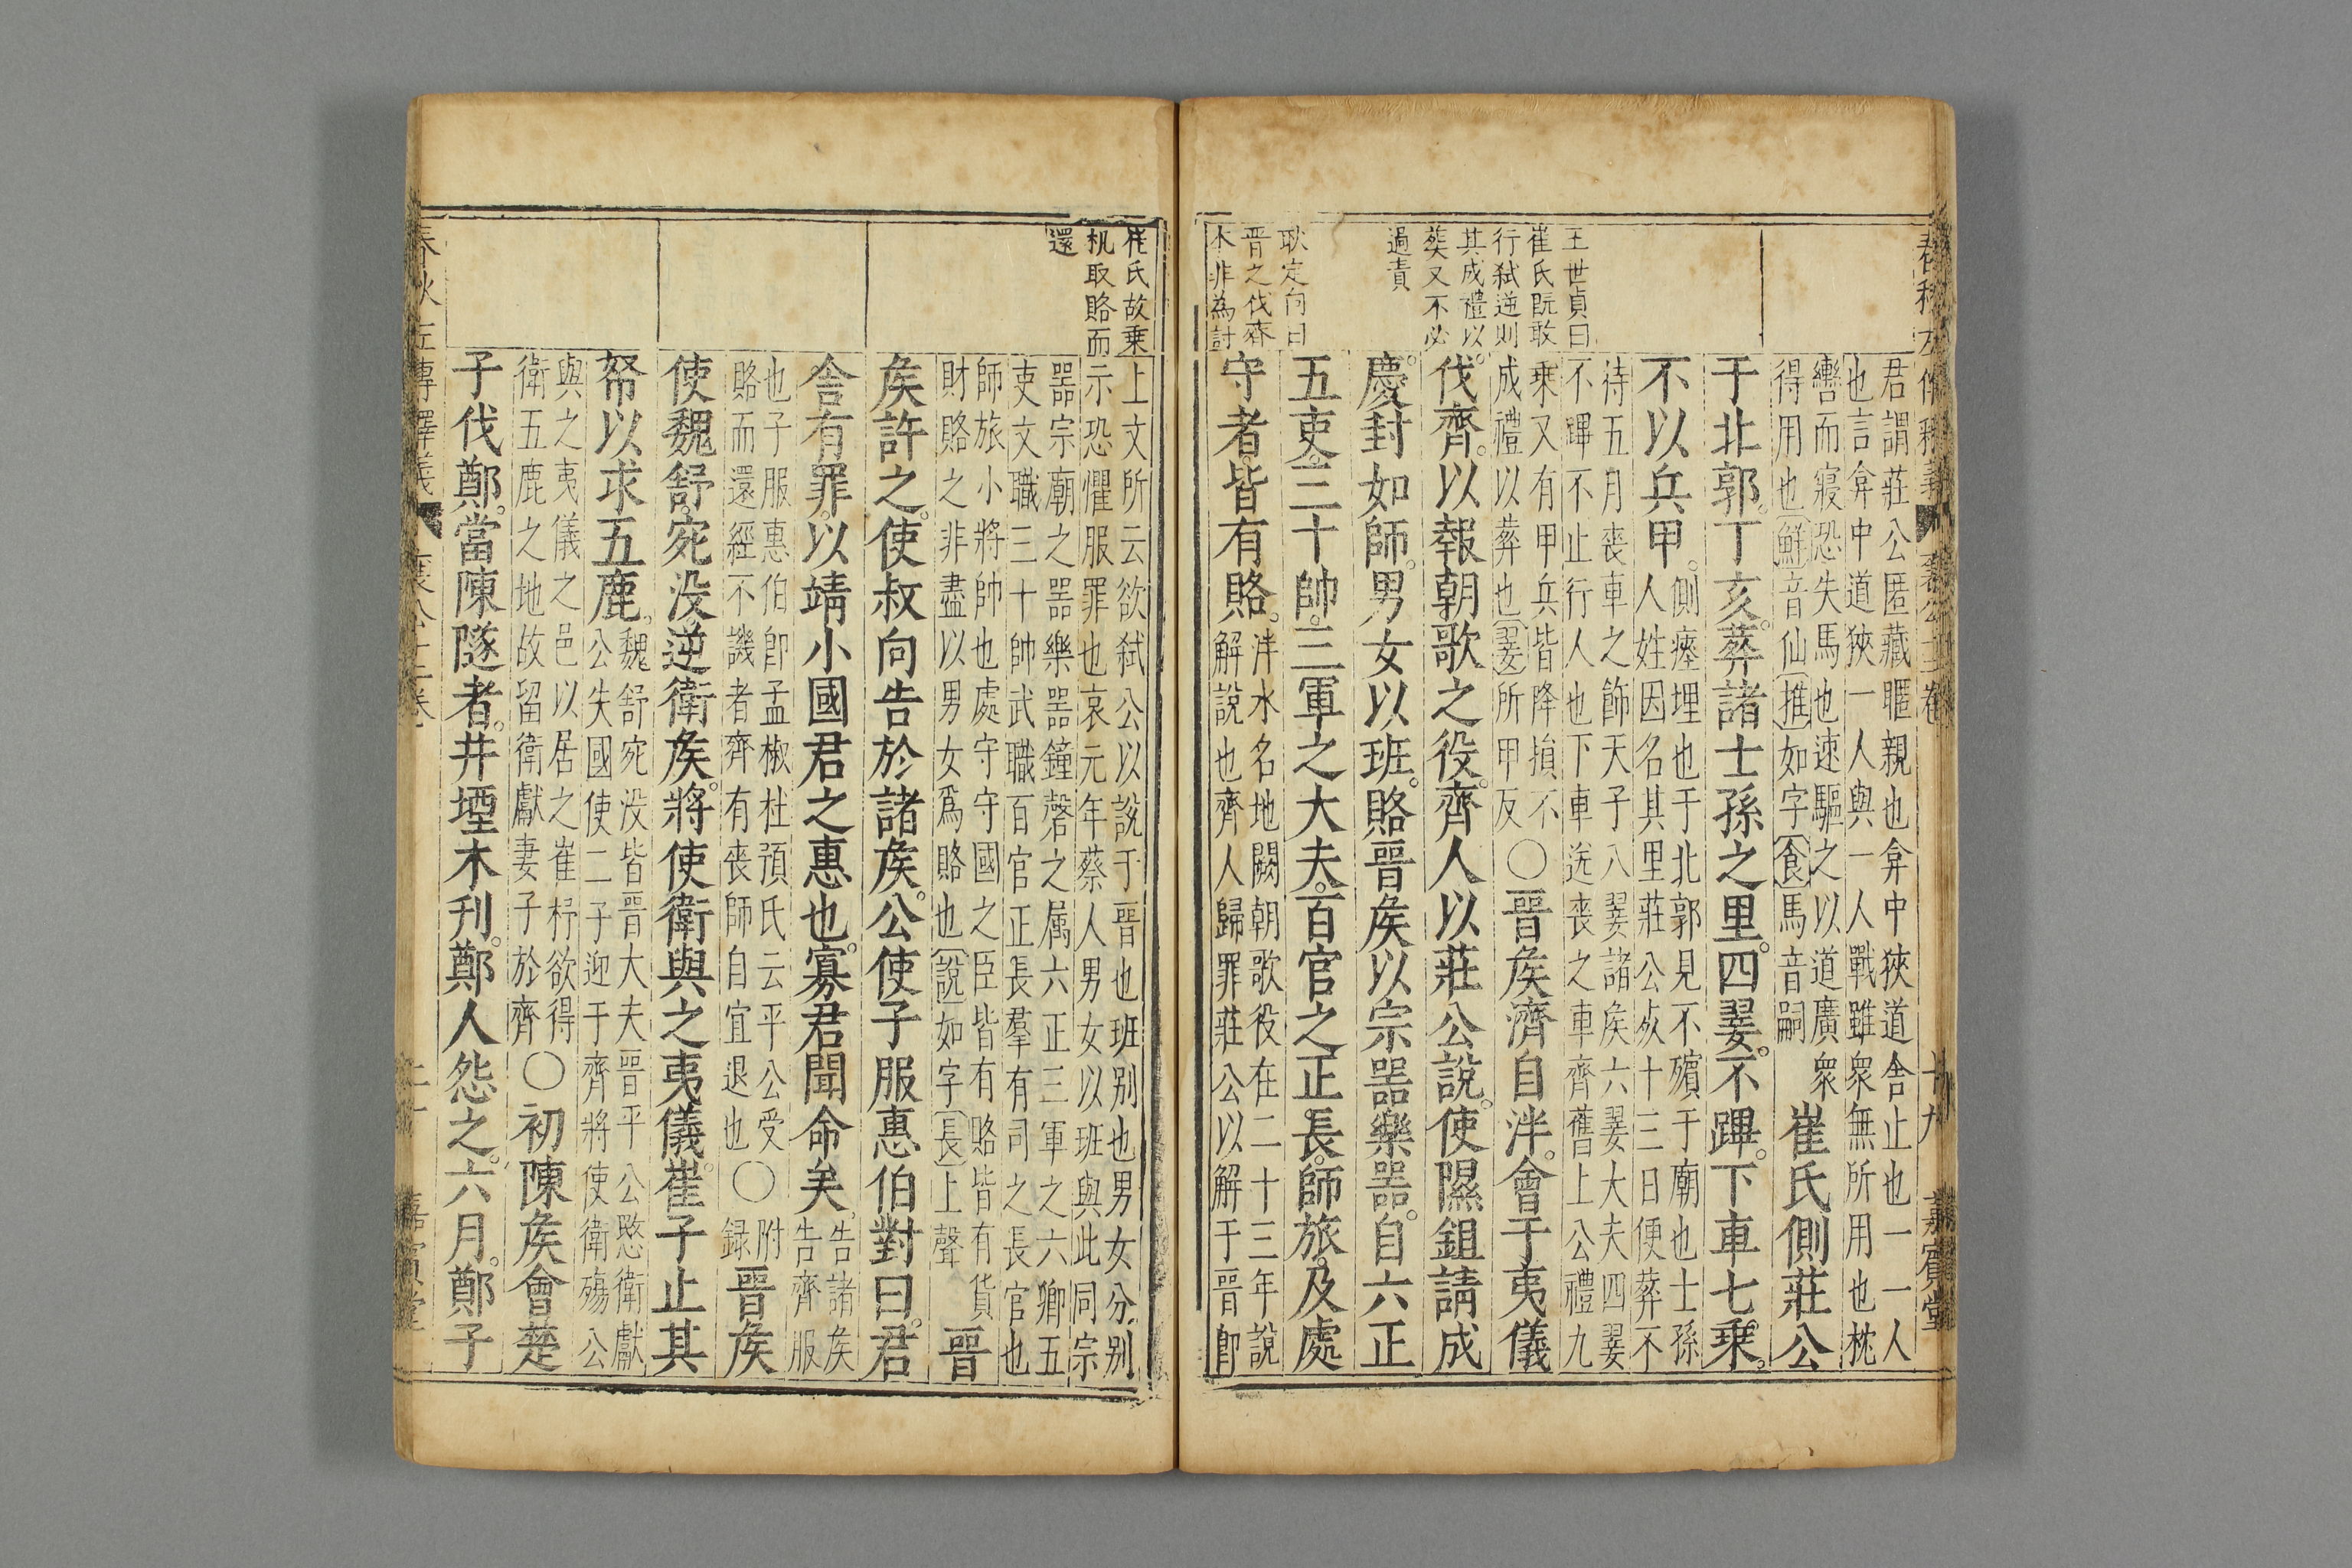 王世貞曰
崔氏既敢
行弑逆則
其成禮以
葬又不必
過責
耿定向曰
晉之伐齊
本非為討
君謂莊公匿藏暱親也弇中狹道舍止也一一人
也言弇中道狹一人與一人戰雖衆無所用也枕
轡而寢恐失馬也速驅之以道廣衆
得用也鮮音仙推如字食馬音嗣
崔氏側莊公
于北郭。丁亥。葬諸士孫之里。四翣。不蹕。下車七乗。
不以兵甲。
側瘞埋也于北郭見不殯于廟也士孫
人姓因名其里莊公死十三日便葬不
待五月喪車之飾天子八翣諸矦六翣大夫四翣
不蹕不止行人也下車送喪之車齊舊上公禮九
乗又有甲兵皆降損不
成禮以葬也翣所甲反
○晉矦濟自泮。會于夷儀
伐齊。以報朝歌之役。齊人以莊公說。使隰鉏請成
慶封如師。男女以班。賂晉矦以宗噐樂噐。自六正
五吏。三十帥。三軍之大夫。百官之正長。師旅。及處
守者。皆有賂。
泮水名地闕朝歌役在二十三年說
解說也齊人歸罪莊公以解于晉卽
崔氏故乗
机取賂而
還
上文所云欲弑公以說于晉也班别也男女分别
示恐懼服罪也哀元年蔡人男女以班與此同宗
噐宗廟之噐樂噐鐘磬之属六正三軍之六卿五
吏文職三十帥武職百官正長羣有司之長官也
師旅小將帥也處守守國之臣皆有賂皆有貨
財賂之非盡以男女爲賂也說如字長上聲
晉
矦許之。使叔向告於諸矦。公使子服惠伯對曰。君
舎有罪。以靖小國君之惠也。寡君聞命矣。
告諸矦
告齊服
也子服惠伯卽孟椒杜預氏云平公受
賂而還經不譏者齊有喪師自宜退也
○
附
録
晉矦
使魏舒宛没。逆衛矦。將使衛與之夷儀。崔子止其
帑以求五鹿。
魏舒宛没皆晉大夫晉平公愍衛獻
公失國使二子迎于齊將使衛殤公
與之夷儀之邑以居之崔杼欲得
衛五鹿之地故留衛獻妻子於齊
○初陳矦會楚
子伐鄭。當陳隧者。井堙木刊。鄭人怨之。六月。鄭子